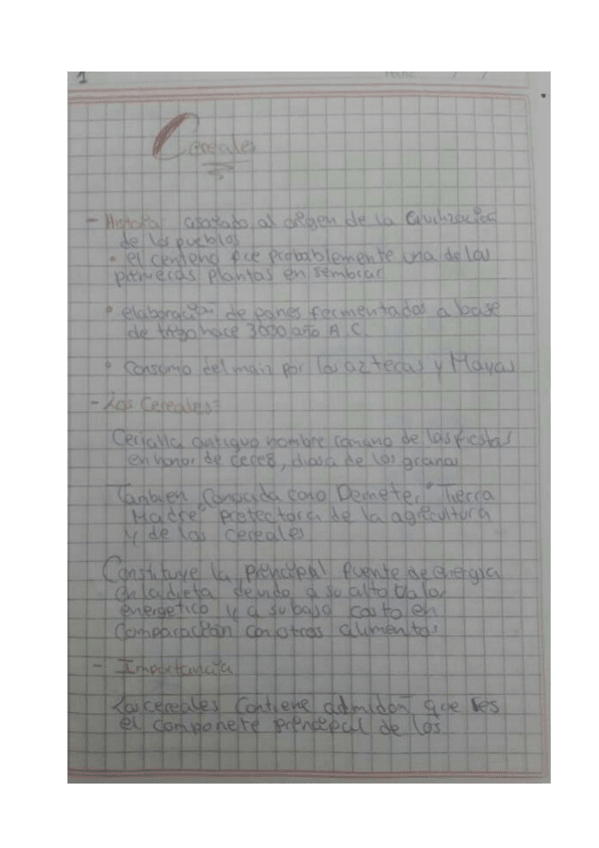 1
Fecha / /
Cereales
- Historia: asociado al origen de la civilización
de los pueblos
• el centeno fue probablemente una de las
primeras plantas en sembrar
• elaboración de panes fermentados a base
de trigo hace 3000 año A.C
• Consumo del maiz por los aztecas y Mayas
- Los Cereales:
Cerialia antiguo nombre romano de las fiestas
en honor de ceres, diosa de los granos
Tambien Conocida como Demeter "Tierra
Madre" Protectora de la agricultura
y de los cereales
Constituye la principal fuente de energia
en la dieta debido a su alto valor
energetico y a su bajo costo en
Comparación con otros alimentos
- Importancia
Los cereales Contiene almidon que es
el componete principal de los